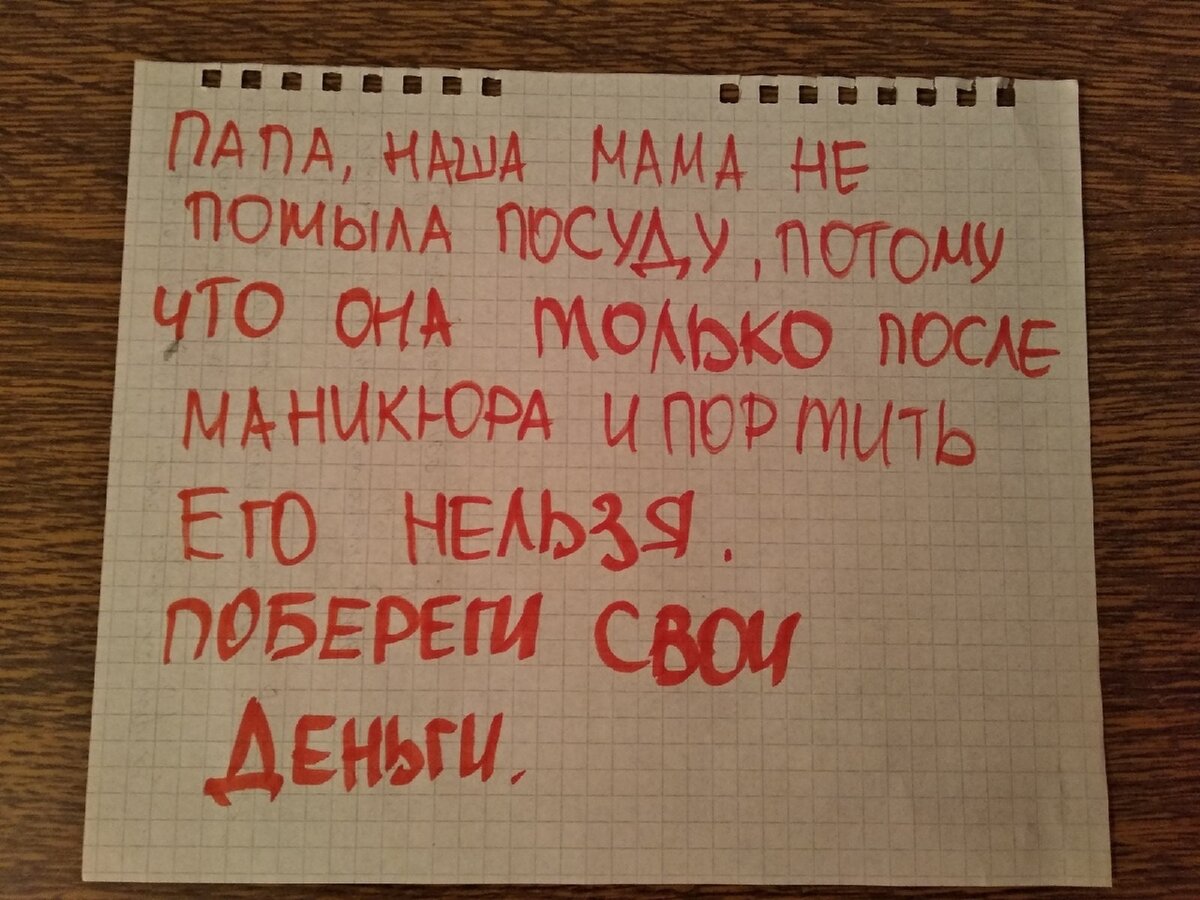 ПАПА, НАША МАМА НЕ
ПОМЫЛА ПОСУДУ, ПОТОМУ
ЧТО ОНА ТОЛЬКО ПОСЛЕ
МАНИКЮРА И ПОРТИТЬ
ЕГО НЕЛЬЗЯ.
ПОБЕРЕГИ СВОИ
ДЕНЬГИ.